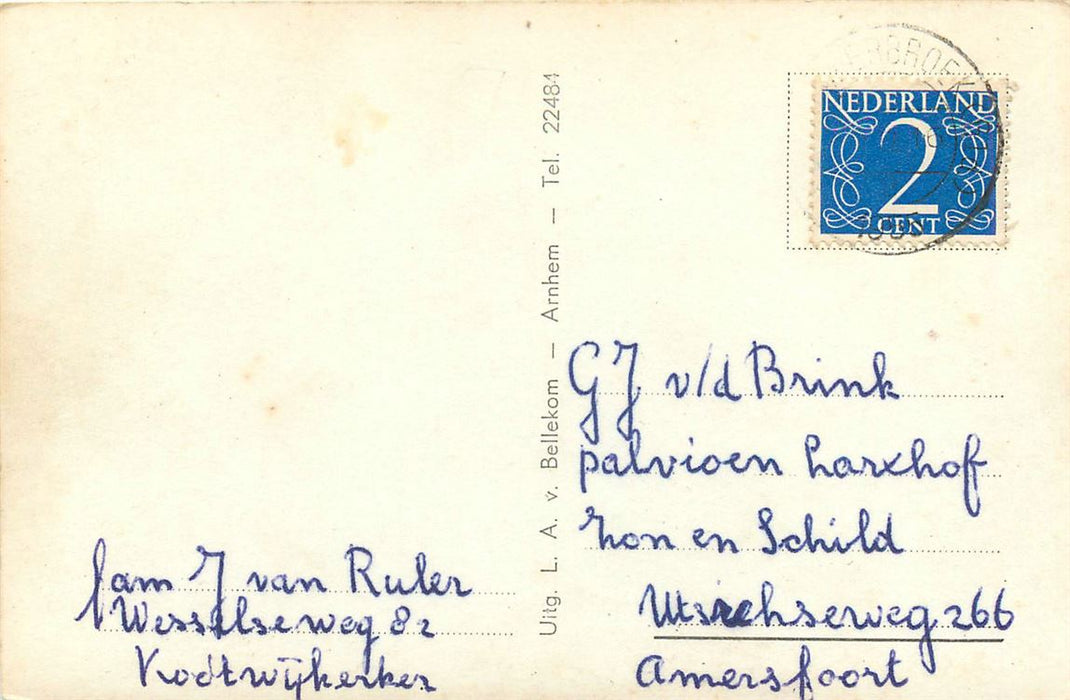 NEDERLAND
2
CENT
Uitg. L. A. v. Bellekom — Arnhem — Tel. 22484
G J v/d Brink
palvioen Larxhof
Zon en Schild
Utsrehserweg 266
Amersfoort
fam J van Ruler
Wesselseweg 82
Kootwijkerker